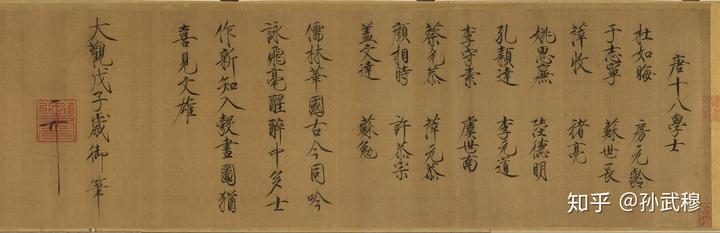 唐十八學士
杜如晦 房元齡
于志寧 蘇世長
薛收 褚亮
姚思廉 陸德明
孔穎達 李元道
李守素 虞世南
蔡元恭 薛元恭
顏相時 許恭宗
盖文達 蘇勉
儒林華國古今同吟
詠飛毫醒醉中多士
作新知入彀畫圖猶
喜見文雄
大觀戊子歲御筆
知乎 @孙武穆